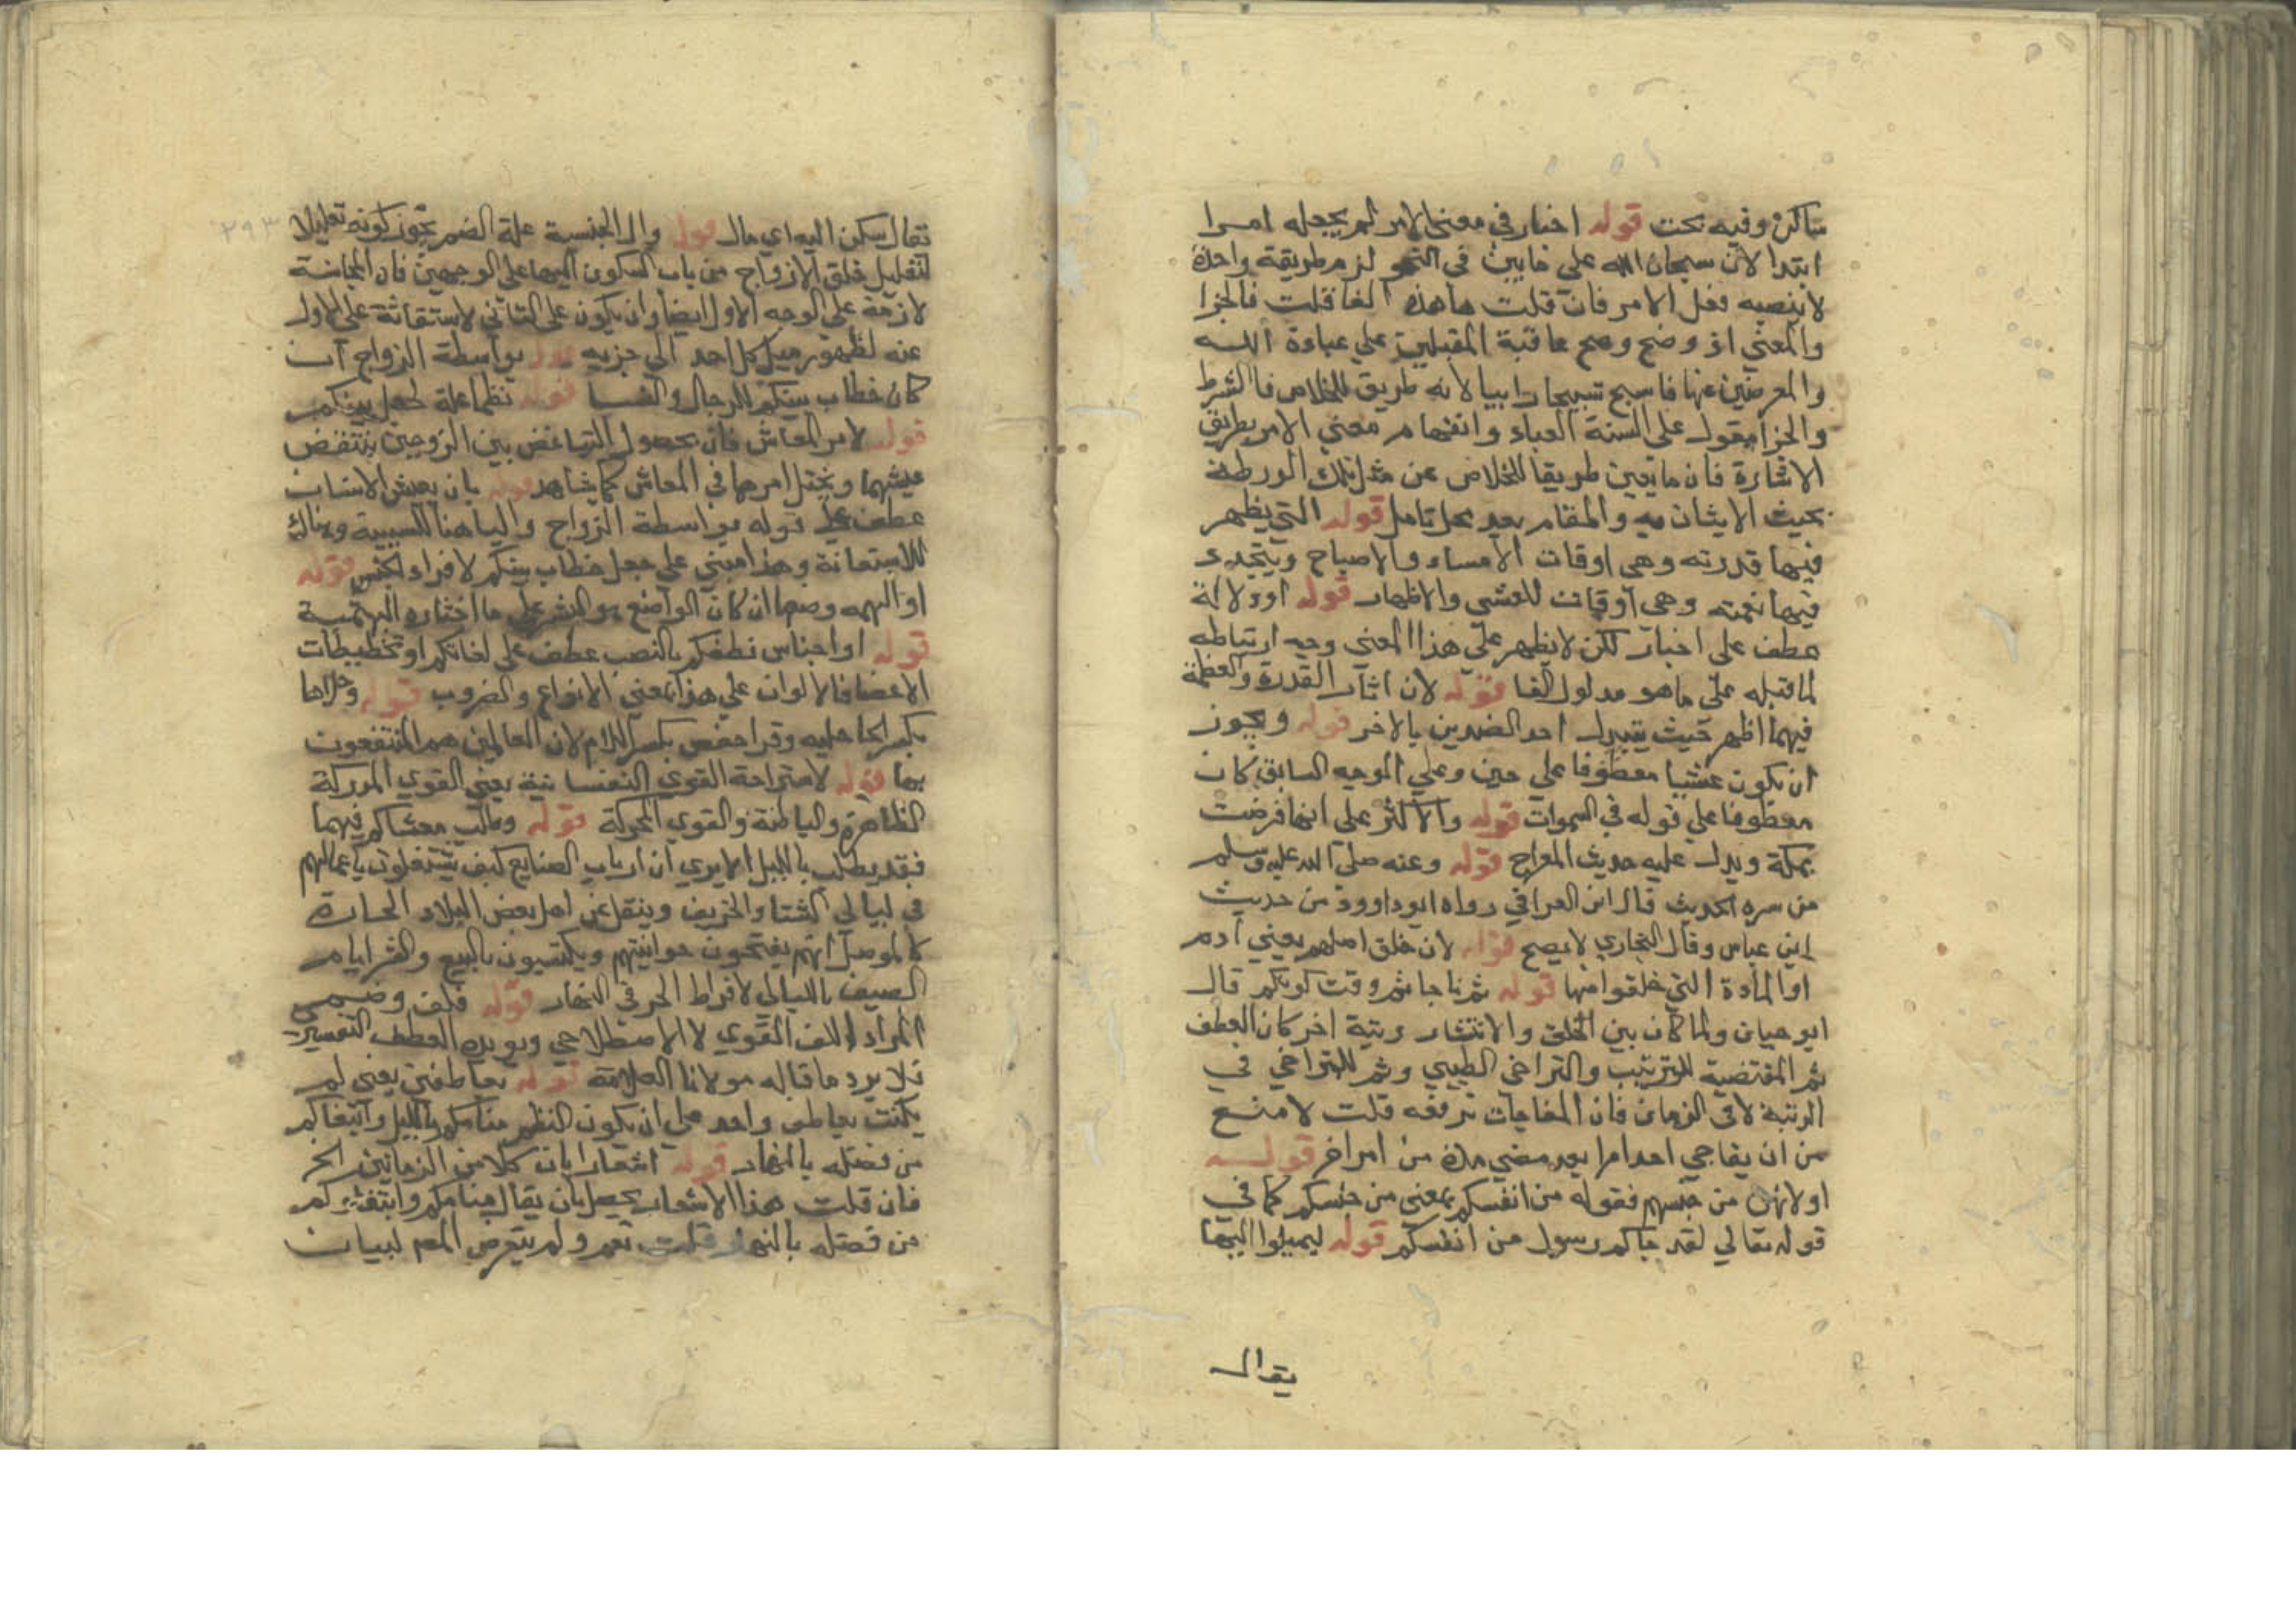 ساكن وفيه بحث قوله اخبار في معنى الامر لم يجعله امرا
ابتدا لان سبحان الله على ما بين في النحو لزم طريقة واحدة
لا ينصبه فعل الامر فان قلت ما هذه الفا قلت فا الجزا
والمعني اذ وضح وصح عاقبة المقبلين علي عبادة الله
والمعرضين عنها فا سبح تسبيحا لانه طريق للخلاص فا الشرط
والجزا مقول علي السنة العباد وانفهام معني الامر بطريق
الاشارة فان ما تعين طريقا للخلاص عن مثل تلك الورطة
يجب الايتان به والمقام بعد محل تامل قوله التي يظهر
فيها قدرته وهي اوقات الامساء والاصباح ويتجدد
فيها نعمته وهي اوقات للعشي والاظهار قوله او دلالة
عطف على اخبار لكن لا يظهر علي هذا المعني وجه ارتباطه
لما قبله علي ما هو مدلول الفا قوله لان اثار القدرة والعظمة
فيهما اظهر حيث يتبدل احد الضدين بالاخر قوله ويجوز
ان يكون عشيا معطوفا علي حين وعلي الوجه السابق كان
معطوفا علي قوله في السموات قوله والاكثر على انها فرضت
بمكة ويدل عليه حديث المعراج قوله وعنه صلي الله عليه وسلم
من سره الحديث قال ابن العراقي رواه ابو داوود من حديث
ابن عباس وقال البخاري لا يصح قوله لان خلق اصلهم يعني آدم
او المادة التي خلقوا منها قوله ثم فاجاتم وقت كونكم قال
ابو حيان ولما كان بين الخلق والانتشار رتبة اخر كان العطف
بثم المقتضية للترتيب والتراخي الطيبي وثم للتراخي في
الرتبة لا في الزمان فان المفاجات تدفعه قلت لا منع
من ان يفاجي احد امرا بعد مضي مدة من امر اخر قوله
او لانهن من جنسهم فقوله من انفسكم بمعني من جنسكم كما في
قوله تعالي لقد جاكم رسول من انفسكم قوله ليميلوا اليها
يقال
يقال سكن اليه اي مال قوله وال الجنسية علة الضم يجوز كونه تعليلا
لتعليل خلق الازواج من باب السكون اليها علي الوجهين فان المجانسة
لازمة على الوجه الاول ايضا وان يكون على الثاني لاستغنائه على الاول
عنه لظهور ميل كل احد الي جزيه قوله بواسطة الزواج ان
كان خطاب بينكم للرجال والنسا قوله نظما علة لجعل بينكم
قوله لامر المعاش فان بحصول التباغض بين الزوجين ينتغض
عيشهما ويختل امرهما في المعاش كما يشاهد قوله بان يعيش الانسان
عطف علي قوله بواسطة الزواج والبا هنا للسببية وهناك
للاستعانة وهذا مبني علي جعل خطاب بينكم لافراد الجنس قوله
او الهمه وضعها ان كان الواضع هو البشر علي ما اختاره البهشمية
قوله او اجناس نطقكم بالنصب عطف علي لغاتكم او تخطيطات
الاعضا فالالوان علي هذا بمعني الانواع والضروب قوله
وقرا حفص بكسر اللام لان العالمين هم المنتفعون
بها قوله لاستراحة القوي النفسانية يعني القوي المدركة
الظاهرة والباطنة والقوي المحركة قوله وطلب معاشكم فيهما
فقد يطلب بالليل الا يري ان ارباب الصنايع كيف يشتغلون باعمالهم
في ليالي الشتا والخريف وينقل عن اهل بعض البلاد الحارة
كالموصل انهم يفتحون حوانيتهم ويكتسبون بالبيع والشرا ايام
الصيف بالليالي لافراط الحر في النهار قوله فلف وضم
المراد اللف اللغوي لا الاصطلاحي ويويده العطف التفسيري
فلا يرد ما قاله مولانا العلامة قوله بعاطفين يعني لم
يكتف بعاطف واحد علي ان يكون النظم منامكم بالليل وابتغاكم
من فضله بالنهار قوله اشعارا بان كلا من الزمانين الخ
فان قلت هذا الاشعار يحصل بان يقال منامكم وابتغاكم
من فضله بالنهار قلت نعم ولم يتعرض المص لبيان